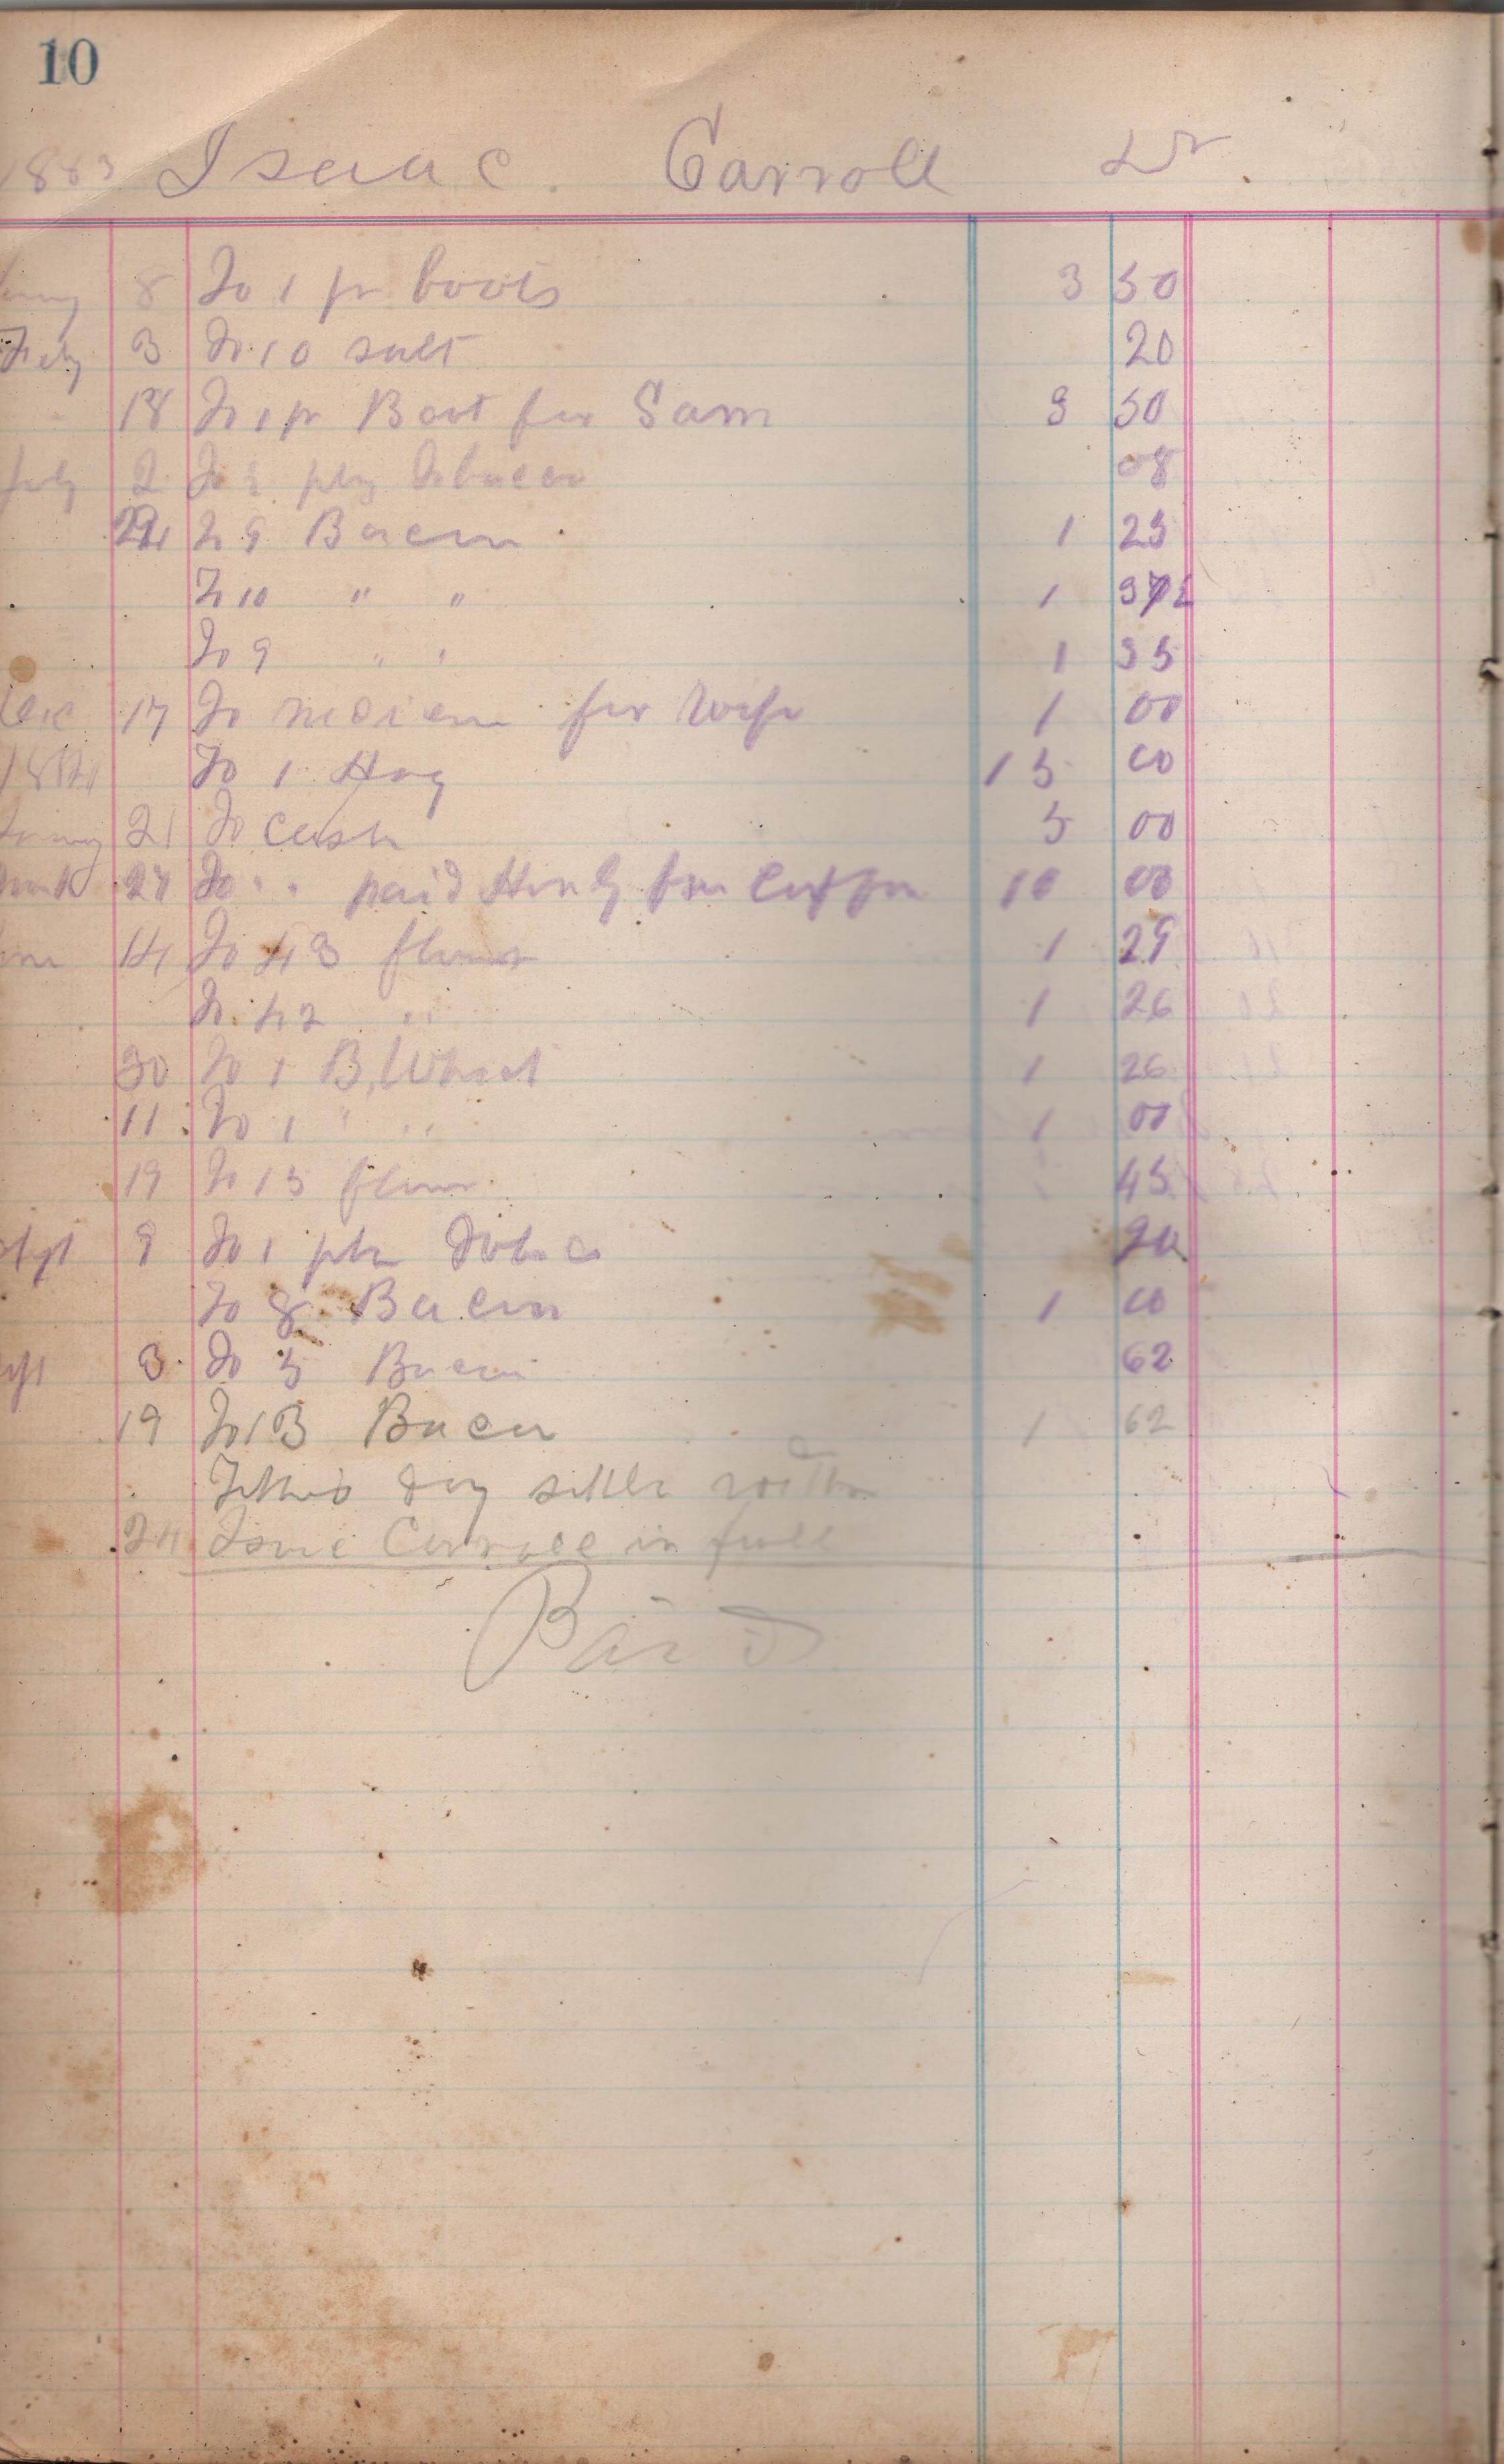 10
1883 Isaac Carroll Dr.
8 To 1 pr boots 3 50
Feby 3 To 10 salt 20
18 To 1 pr Boot for Sam 3 50
July 2 To plg Tobacco 08
To 9 Bacon 1 25
To 10 " " 1
To 9 " " 1 35
Dec 17 To for wife 1 00
1884 To 1 Hog 15 00
21 To cash 5 00
27 To " " paid 10 00
14 To 43 flour 1 29
To 42 " 1 26
30 To 1 B, Wheat 1 26
11 To 1 " " 1 00
19 To 15 flour 45
9 To 1 Tobaco 20
To 8 Bacon 1 00
3 To 5 Bacon 62
19 To 13 Bacon 1 62
day settle with
24 Isaac Carroll in full
Paid